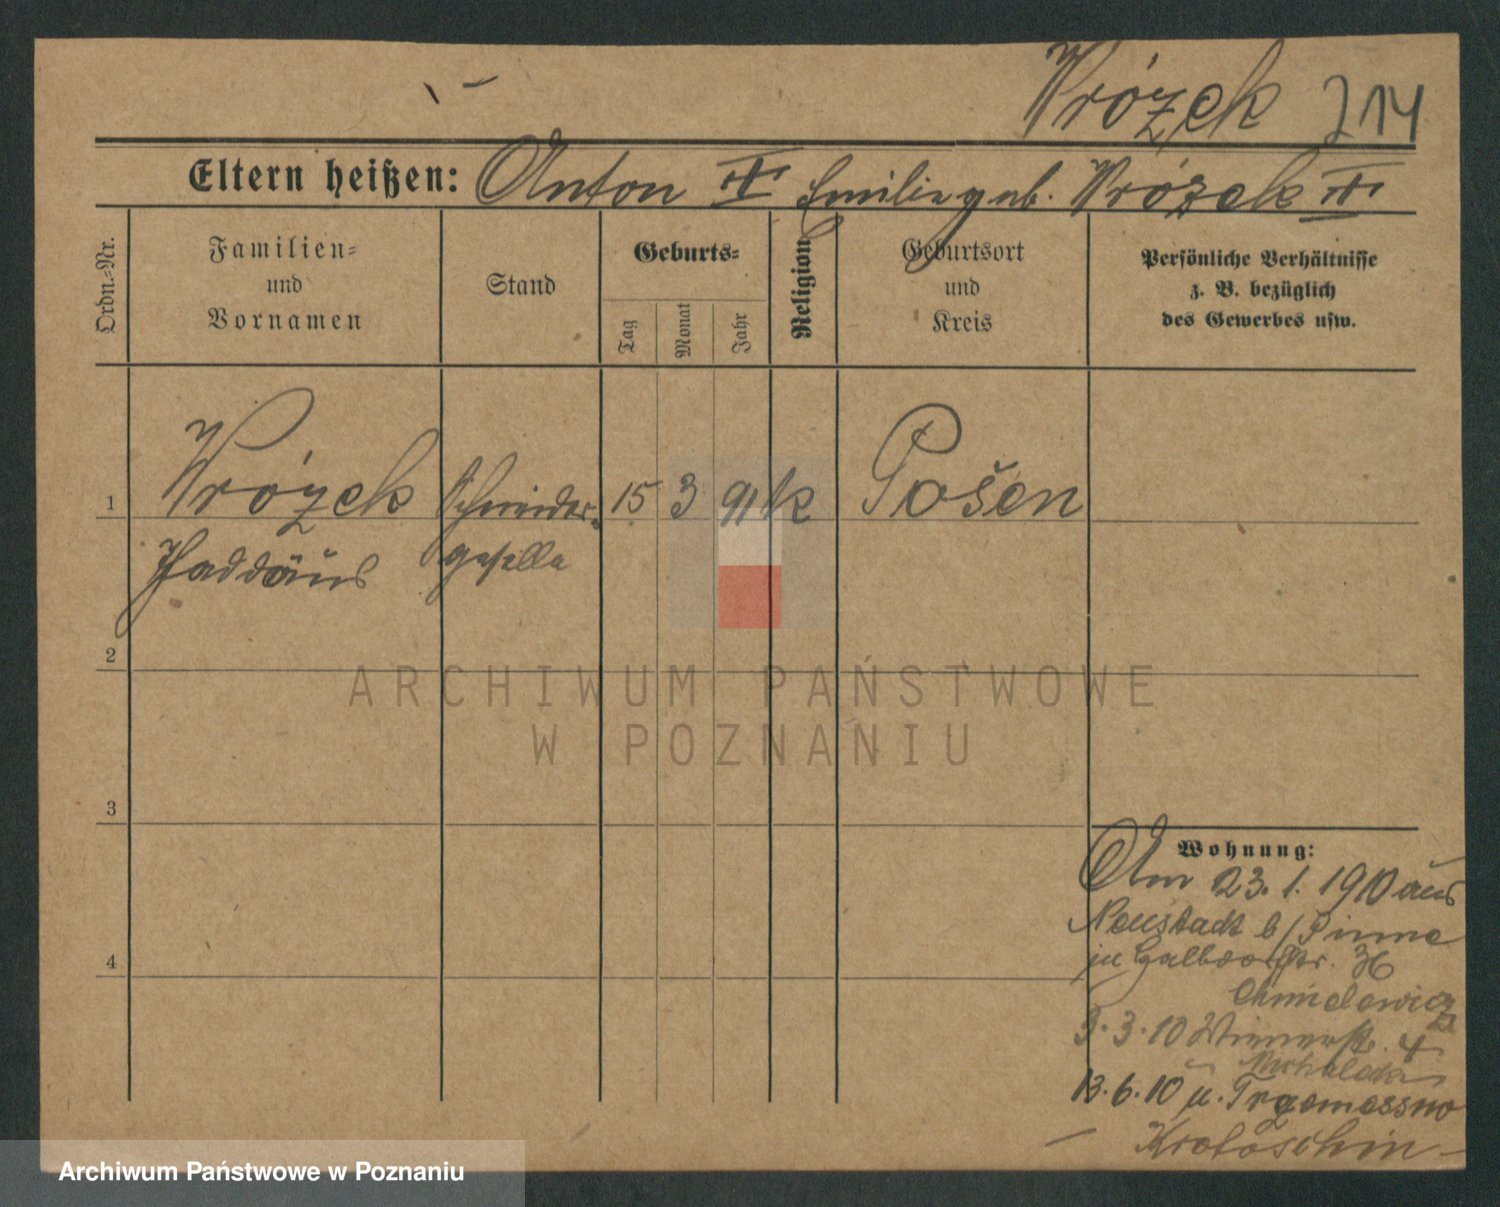 Wrózek 214
Eltern heißen: Anton Emilie geb. Wrózek
Ordn.-Nr.
Familien-
und
Vornamen
Stand
Geburts-
Tag
Monat
Jahr
Religion
Geburtsort
und
Kreis
Persönliche Verhältnisse
z. B. bezüglich
des Gewerbes usw.
1 Wrózek Schneider- 15 3 91 k Posen
Thaddäus geselle
2
ARCHIWUM PAŃSTWOWE
W POZNANIU
3
Wohnung:
Am 23. 1. 1910 aus
Neustadt b/Pinne
in Halbdorfstr. 36
Chmielewicz
3. 3. 10 Wienerstr. 4
13. 6. 10 n.
Krotoschin
4
Archiwum Państwowe w Poznaniu